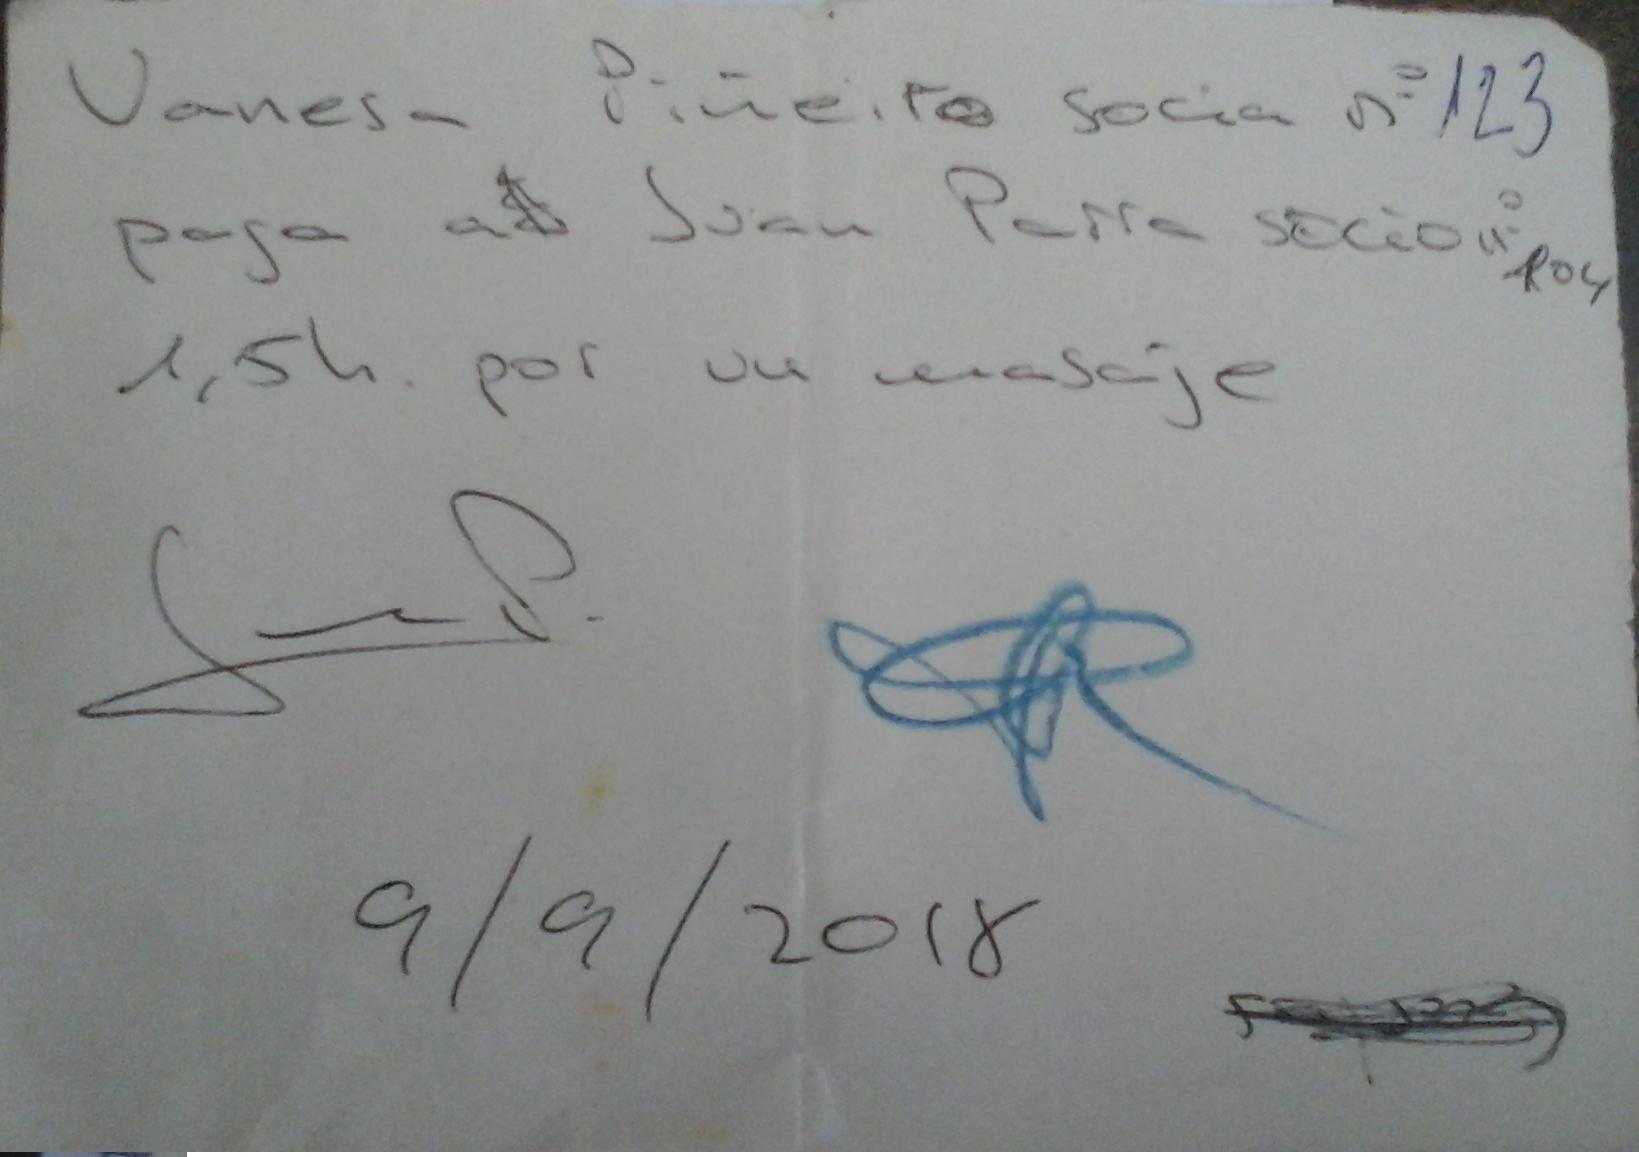 Vanesa Piñeiro socia nº 123
paga a Juan Parra socio nº 104
1,5h. por un masaje
9/9/2018